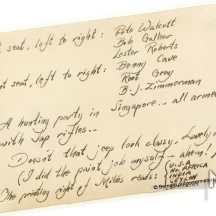 t seat, left to right: Pato Walcott
Bob Galbear
Lester Roberts
nt seat, left to right: Benny Cave
René Grey
B.J. Zimmerman
A hunting party in Singapore... all armed
with Jap rifles...
Doesn't that jeep look classy. Lovely
(I did the paint job myself... ahem!)
The printing right of Mitas reads: U.S.A
NO. AFRICA
INDIA
CEYLON